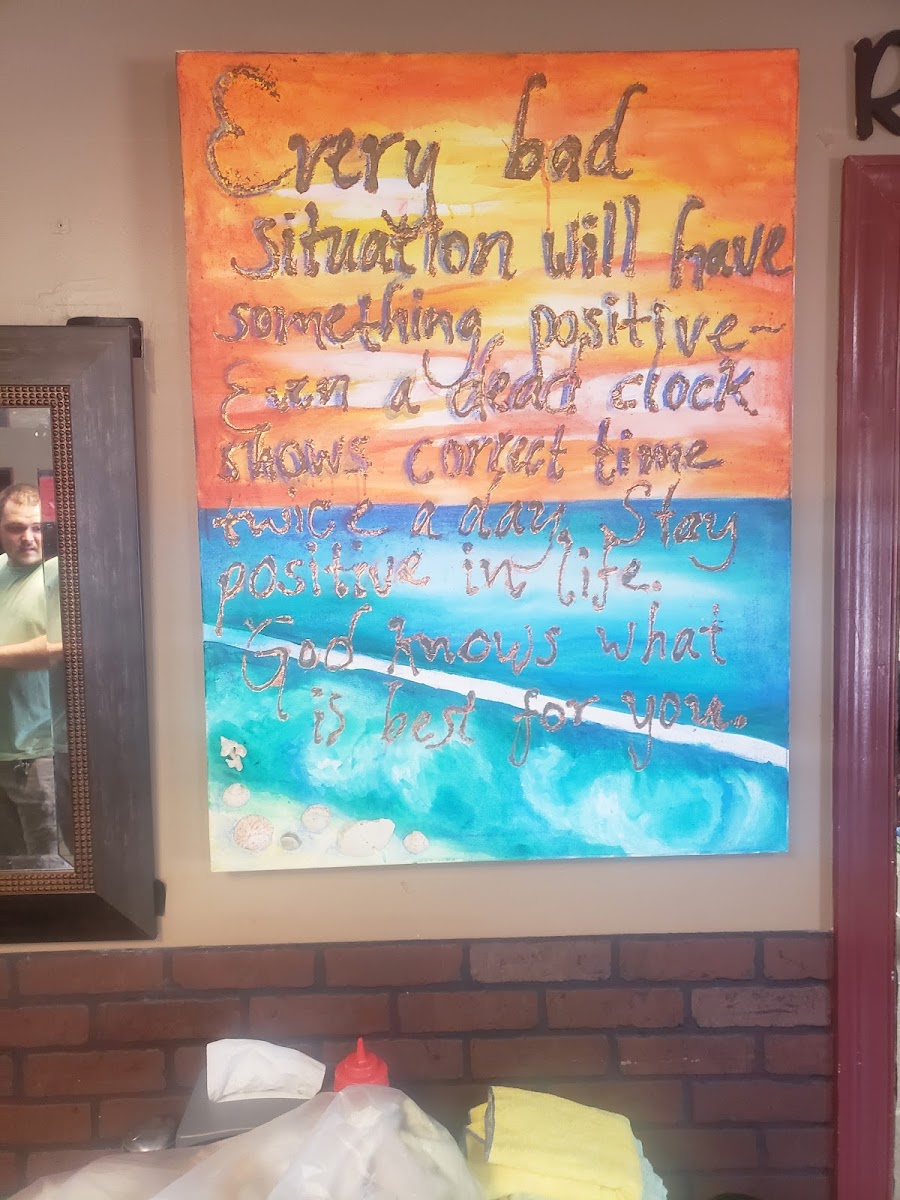 Every bad
situation will have
something positive~
Even a dead clock
shows correct time
twice a day. Stay
positive in life.
God knows what
is best for you.
R